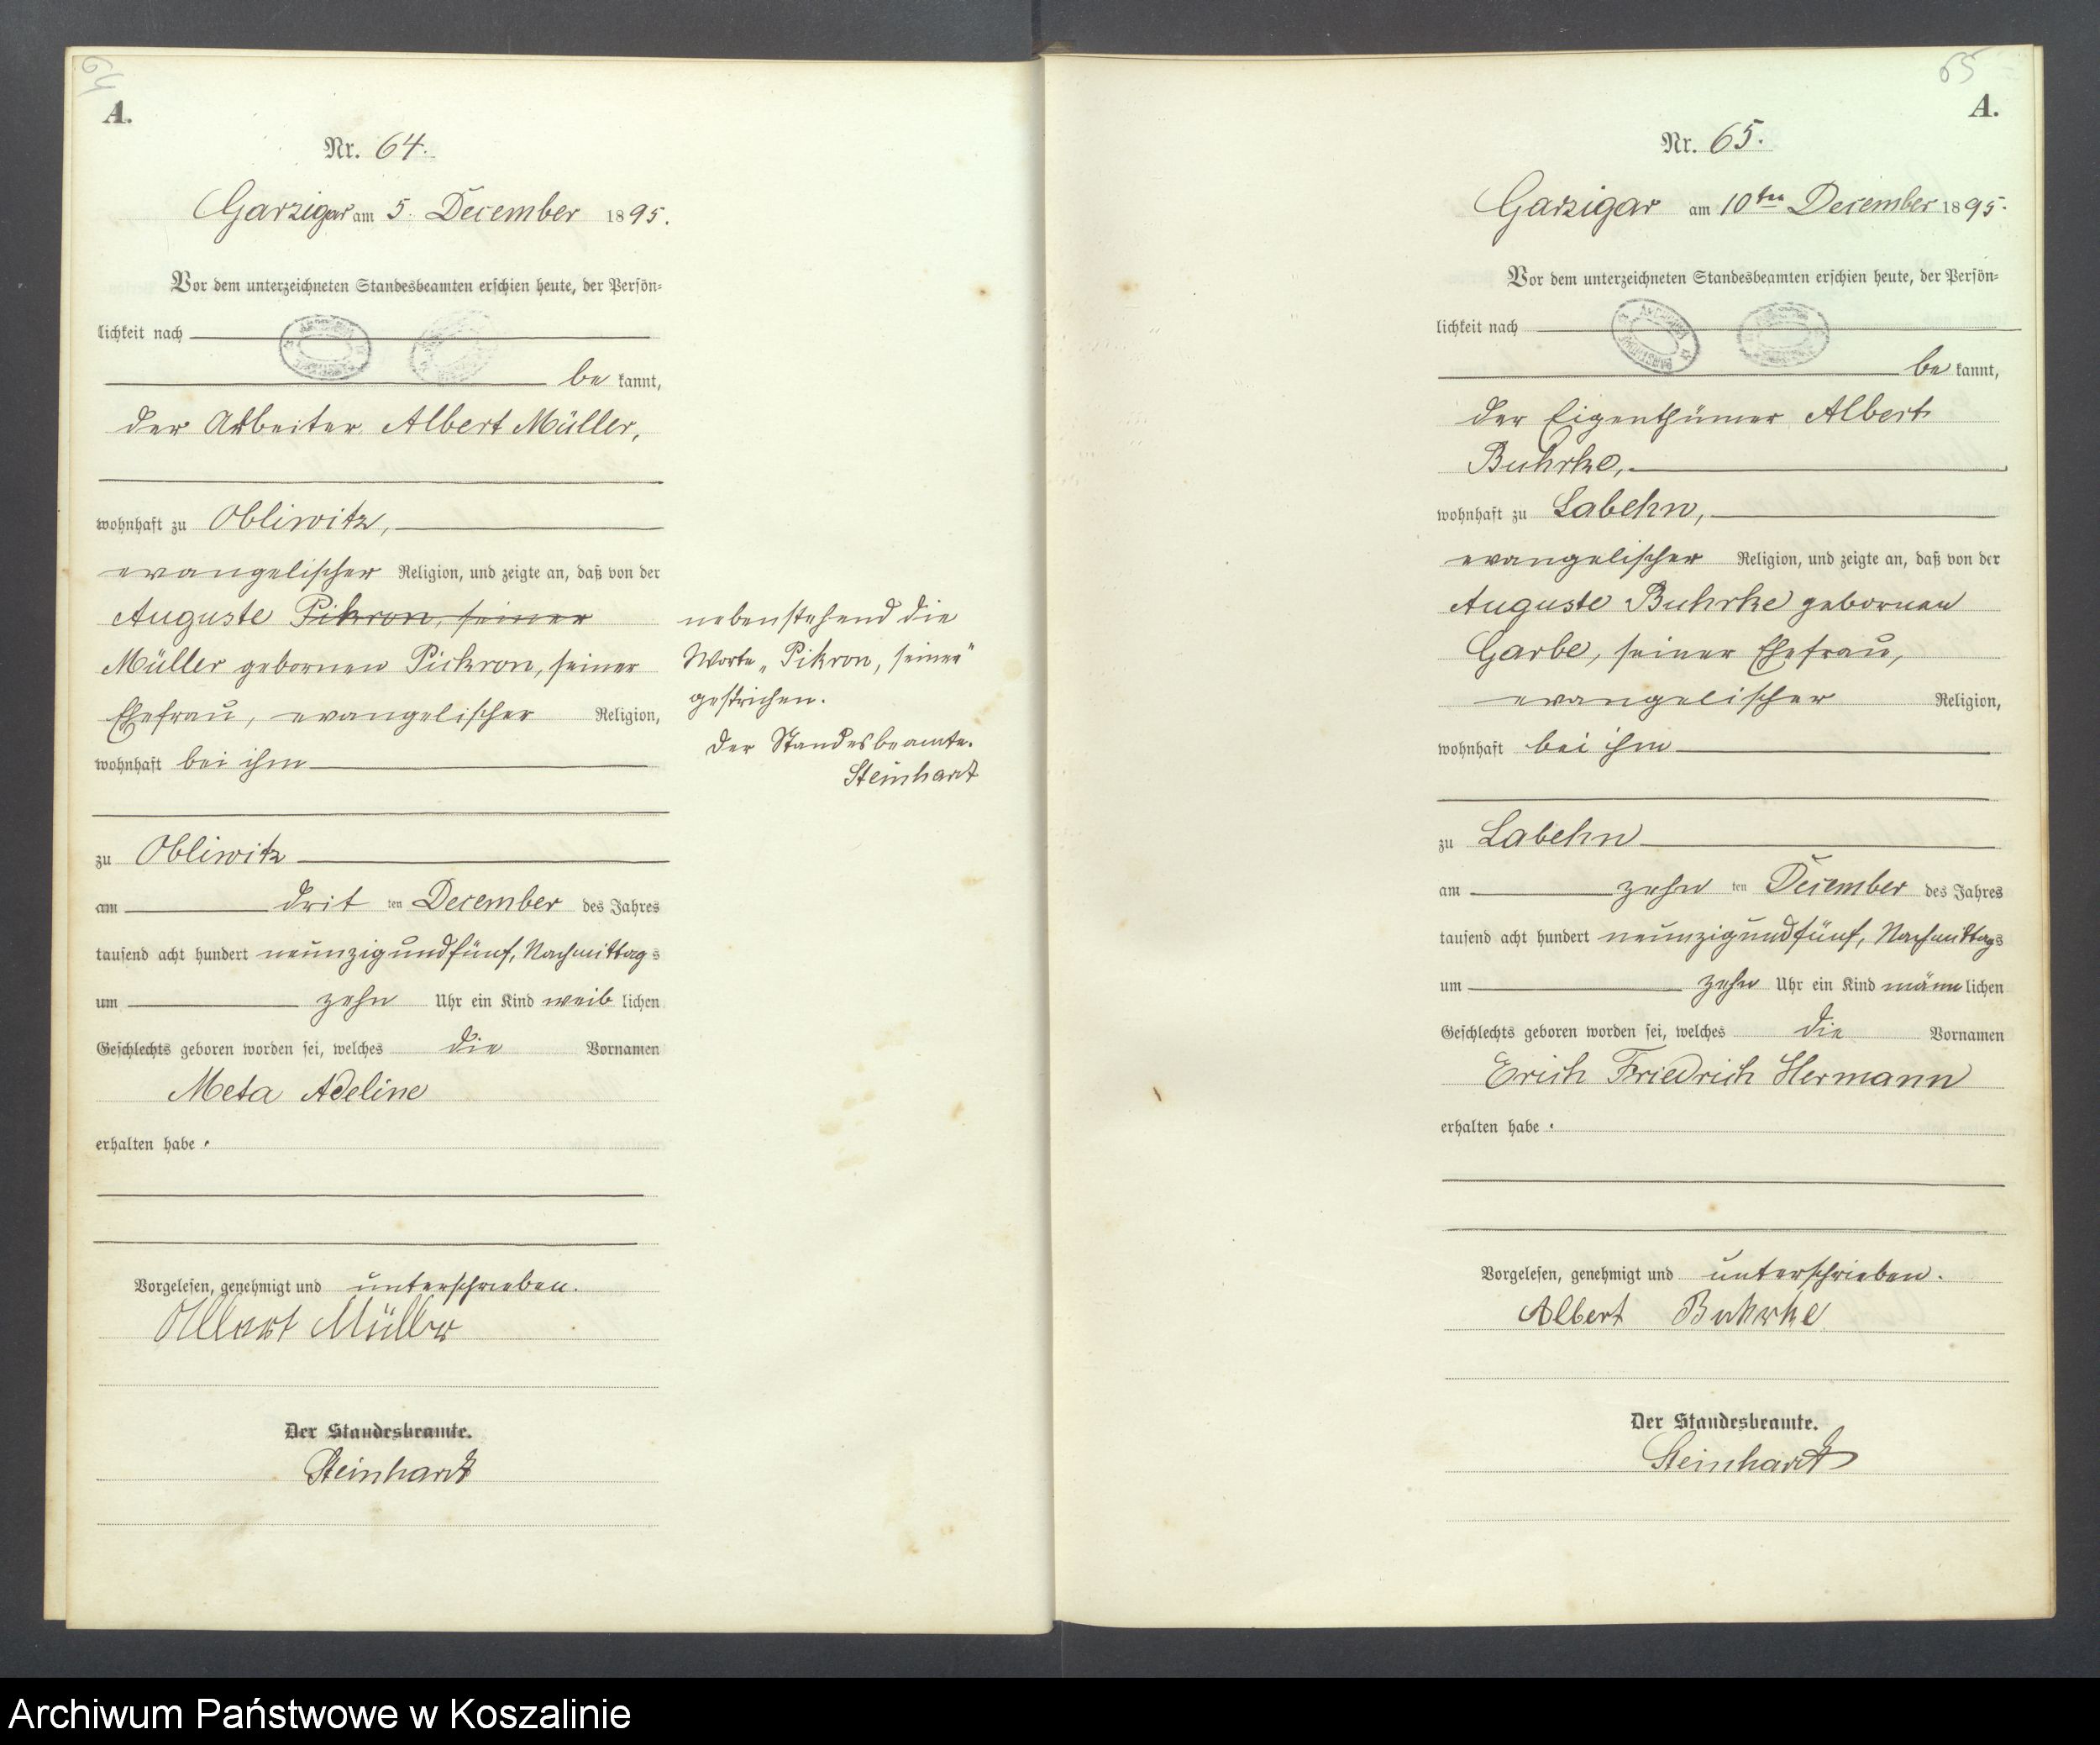 64
A.
Nr. 64.
Garzigar am 5. December 1895.
Vor dem unterzeichneten Standesbeamten erschien heute, der Persön-
lichkeit nach
be kannt,
der Arbeiter Albert Müller,
wohnhaft zu Obliwitz,
evangelischer Religion, und zeigte an, daß von der
Auguste Pikron, seiner
Müller gebornen Pickron, seiner
Ehefrau, evangelischer Religion,
wohnhaft bei ihm
zu Obliwitz
am drit ten December des Jahres
tausend acht hundert neunzig und fünf, Nachmittags
um zehn Uhr ein Kind weib lichen
Geschlechts geboren worden sei, welches die Vornamen
Meta Adeline
erhalten habe.
Vorgelesen, genehmigt und unterschrieben.
Albert Müller
Der Standesbeamte.
Steinhardt
nebenstehend die
Worte „Pikron, seiner"
gestrichen.
Der Standesbeamte.
Steinhardt
65
A.
Nr. 65.
Garzigar am 10ten December 1895.
Vor dem unterzeichneten Standesbeamten erschien heute, der Persön-
lichkeit nach
be kannt,
der Eigenthümer Albert
Buhrke,
wohnhaft zu Labehn,
evangelischer Religion, und zeigte an, daß von der
Auguste Buhrke gebornen
Garbe, seiner Ehefrau,
evangelischer Religion,
wohnhaft bei ihm
zu Labehn
am zehn ten December des Jahres
tausend acht hundert neunzig und fünf, Nachmittags
um zehn Uhr ein Kind männ lichen
Geschlechts geboren worden sei, welches die Vornamen
Erich Friedrich Hermann
erhalten habe.
Vorgelesen, genehmigt und unterschrieben.
Albert Buhrke
Der Standesbeamte.
Steinhardt
Archiwum Państwowe w Koszalinie